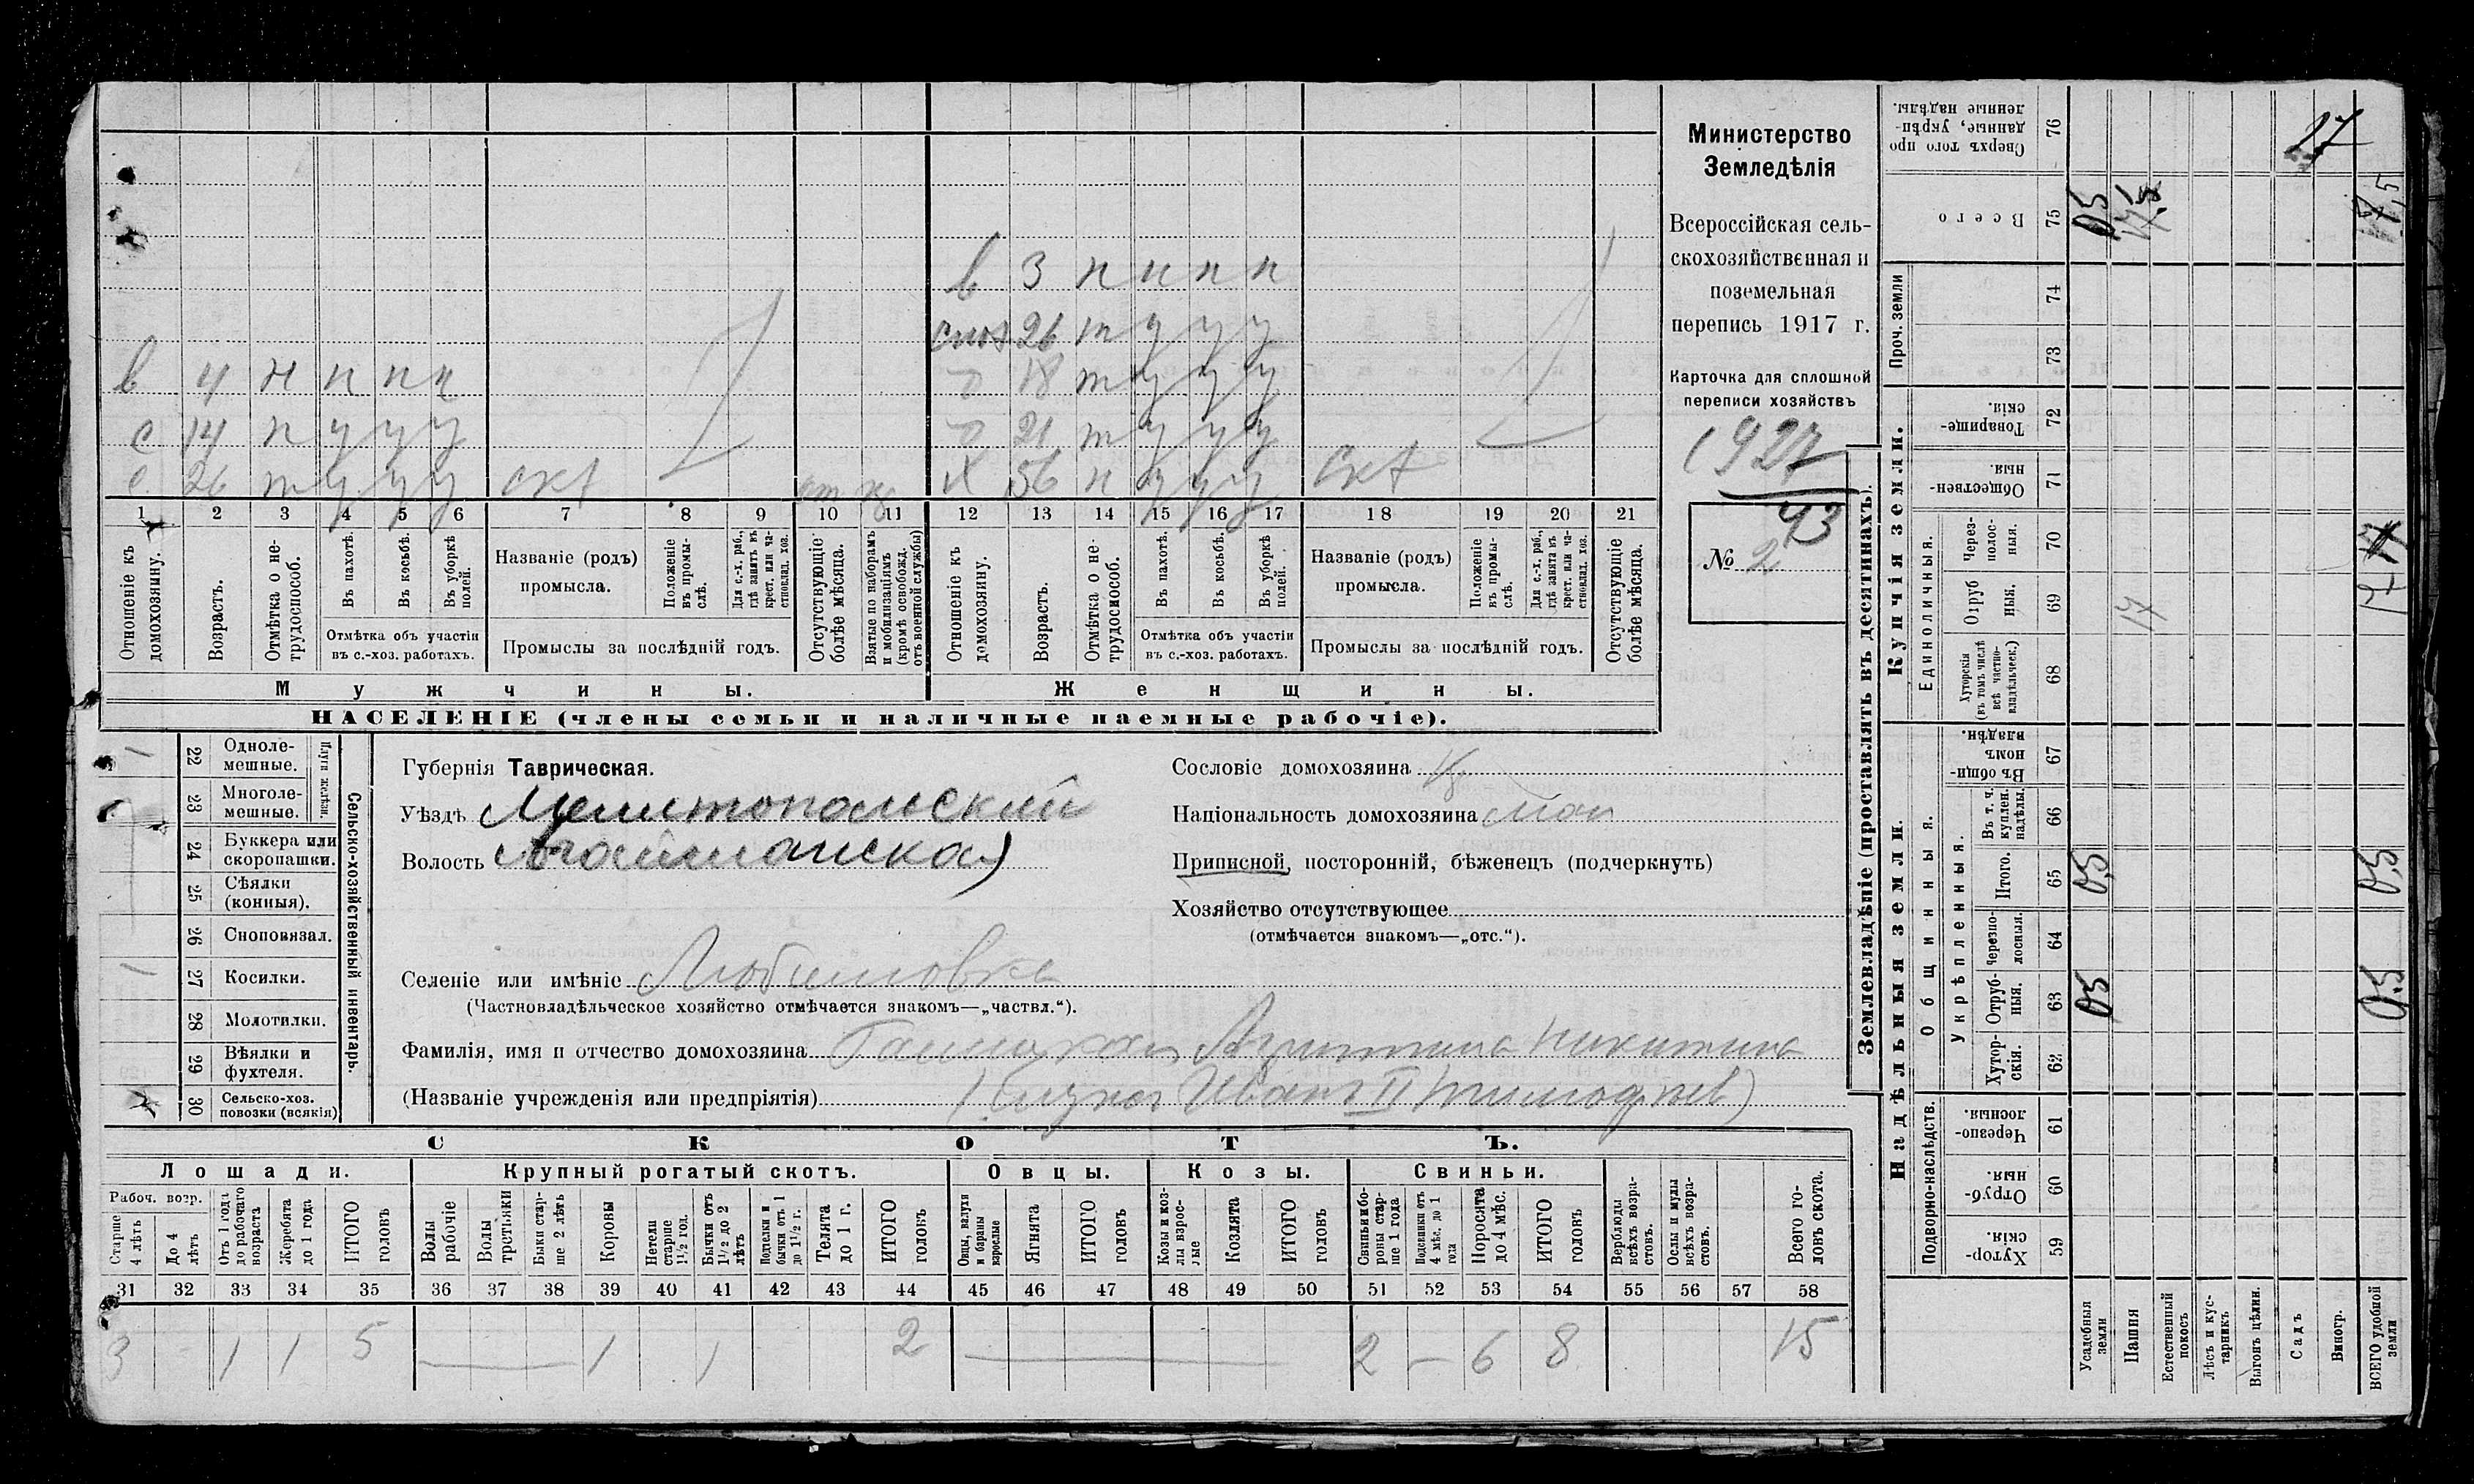 в 3 н н н н
26 т у у у
в 4 н н н н
18 т у у у
с 14 н у у у
21 т у у у
с 26 т у у у скт
56 н у у у скт
1 2 3 4 5 6 7 8 9 10 11 12 13 14 15 16 17 18 19 20 21
Отношеніе къ домохозяину.
Возрастъ.
Отмѣтка о нетрудоспособ.
Въ пахотѣ.
Въ косьбѣ.
Въ уборкѣ полей.
Отмѣтка объ участіи въ с.-хоз. работахъ.
Названіе (родъ) промысла.
Положеніе въ промыслѣ.
Для с.-х. раб., гдѣ занятъ въ крест. или частновлад. хоз.
Промыслы за послѣдній годъ.
Отсутствующіе болѣе мѣсяца.
Взятые по наборамъ и мобилизаціямъ (кромѣ освобожд. отъ военной службы)
Отношеніе къ домохозяину.
Возрастъ.
Отмѣтка о нетрудоспособ.
Въ пахотѣ.
Въ косьбѣ.
Въ уборкѣ полей.
Отмѣтка объ участіи въ с.-хоз. работахъ.
Названіе (родъ) промысла.
Положеніе въ промыслѣ.
Для с.-х. раб., гдѣ занята въ крест. или частновлад. хоз.
Промыслы за послѣдній годъ.
Отсутствующіе болѣе мѣсяца.
Мужчины.
Женщины.
НАСЕЛЕНІЕ (члены семьи и наличные наемные рабочіе).
Министерство
Земледѣлія
Всероссійская сель-
скохозяйственная и
поземельная
перепись 1917 г.
Карточка для сплошной
переписи хозяйствъ
1927
43
№ 2
22 Однолемешные.
23 Многолемешные.
Плуги желѣзн.
24 Буккера или скоропашки.
25 Сѣялки (конныя).
26 Сноповязал.
27 Косилки.
28 Молотилки.
29 Вѣялки и фухтеля.
30 Сельско-хоз. повозки (всякія)
Сельско-хозяйственный инвентарь.
Губернія Таврическая.
Уѣздъ Мелитопольскій
Волость
Селеніе или имѣніе Любимовка
(Частновладѣльческое хозяйство отмѣчается знакомъ—„частвл.“).
Сословіе домохозяина
Національность домохозяина мал
Приписной, посторонній, бѣженецъ (подчеркнуть)
Хозяйство отсутствующее
(отмѣчается знакомъ—„отс.“).
Фамилія, имя и отчество домохозяина Никитина
(Названіе учрежденія или предпріятія) Иванъ II Тимофѣев)
СКОТЪ.
Лошади. Крупный рогатый скотъ. Овцы. Козы. Свиньи.
Рабоч. возр.
Старше 4 лѣтъ
До 4 лѣтъ
Отъ 1 года до рабочаго возраста
Жеребята до 1 года
ИТОГО головъ
Волы рабочіе
Волы третьяки
Быки старше 2 лѣтъ
Коровы
Нетели старше 1½ год.
Бычки отъ 1½ до 2 лѣтъ
Подтелки и бычки отъ 1 до 1½ г.
Телята до 1 г.
ИТОГО головъ
Овцы, валухи и бараны взрослые
Ягнята
ИТОГО головъ
Козы и козлы взрослые
Козлята
ИТОГО головъ
Свиньи и боровы старше 1 года
Подсвинки отъ 4 мѣс. до 1 года
Поросята до 4 мѣс.
ИТОГО головъ
Верблюды всѣхъ возрастовъ.
Ослы и мулы всѣхъ возрастовъ.
Всего головъ скота.
31 32 33 34 35 36 37 38 39 40 41 42 43 44 45 46 47 48 49 50 51 52 53 54 55 56 57 58
3 - 1 1 5 — 1 1 2 — 2 — 6 8 15
Землевладѣніе (проставлять въ десятинахъ).
Купчія земли.
Надѣльныя земли.
Сверхъ того проданные, укрѣпленные надѣлы. 76
27
Всего 75 0,5 17,5
Проч. земли 74 73
Товарищескія. 72
Общественныя. 71
Единоличныя.
Черезполосныя. 70
Отрубныя. 69 17
Хуторскія (въ томъ числѣ всѣ частновладѣльческ.) 68
Общинныя.
Въ общинномъ владѣн. 67
Укрѣпленныя.
Въ т. ч. куплен. надѣлы. 66
Итого. 65 0,5 0,5
Черезполосныя. 64
Отрубныя. 63 0,5 0,5
Хуторскія. 62
Подворно-наслѣдств.
Черезполосныя. 61
Отрубныя. 60
Хуторскія. 59
Усадебныя земли
Пашня
Естественный покосъ
Лѣсъ и кустарникъ
Выгонъ цѣлин.
Садъ
Виногр.
ВСЕГО удобной земли